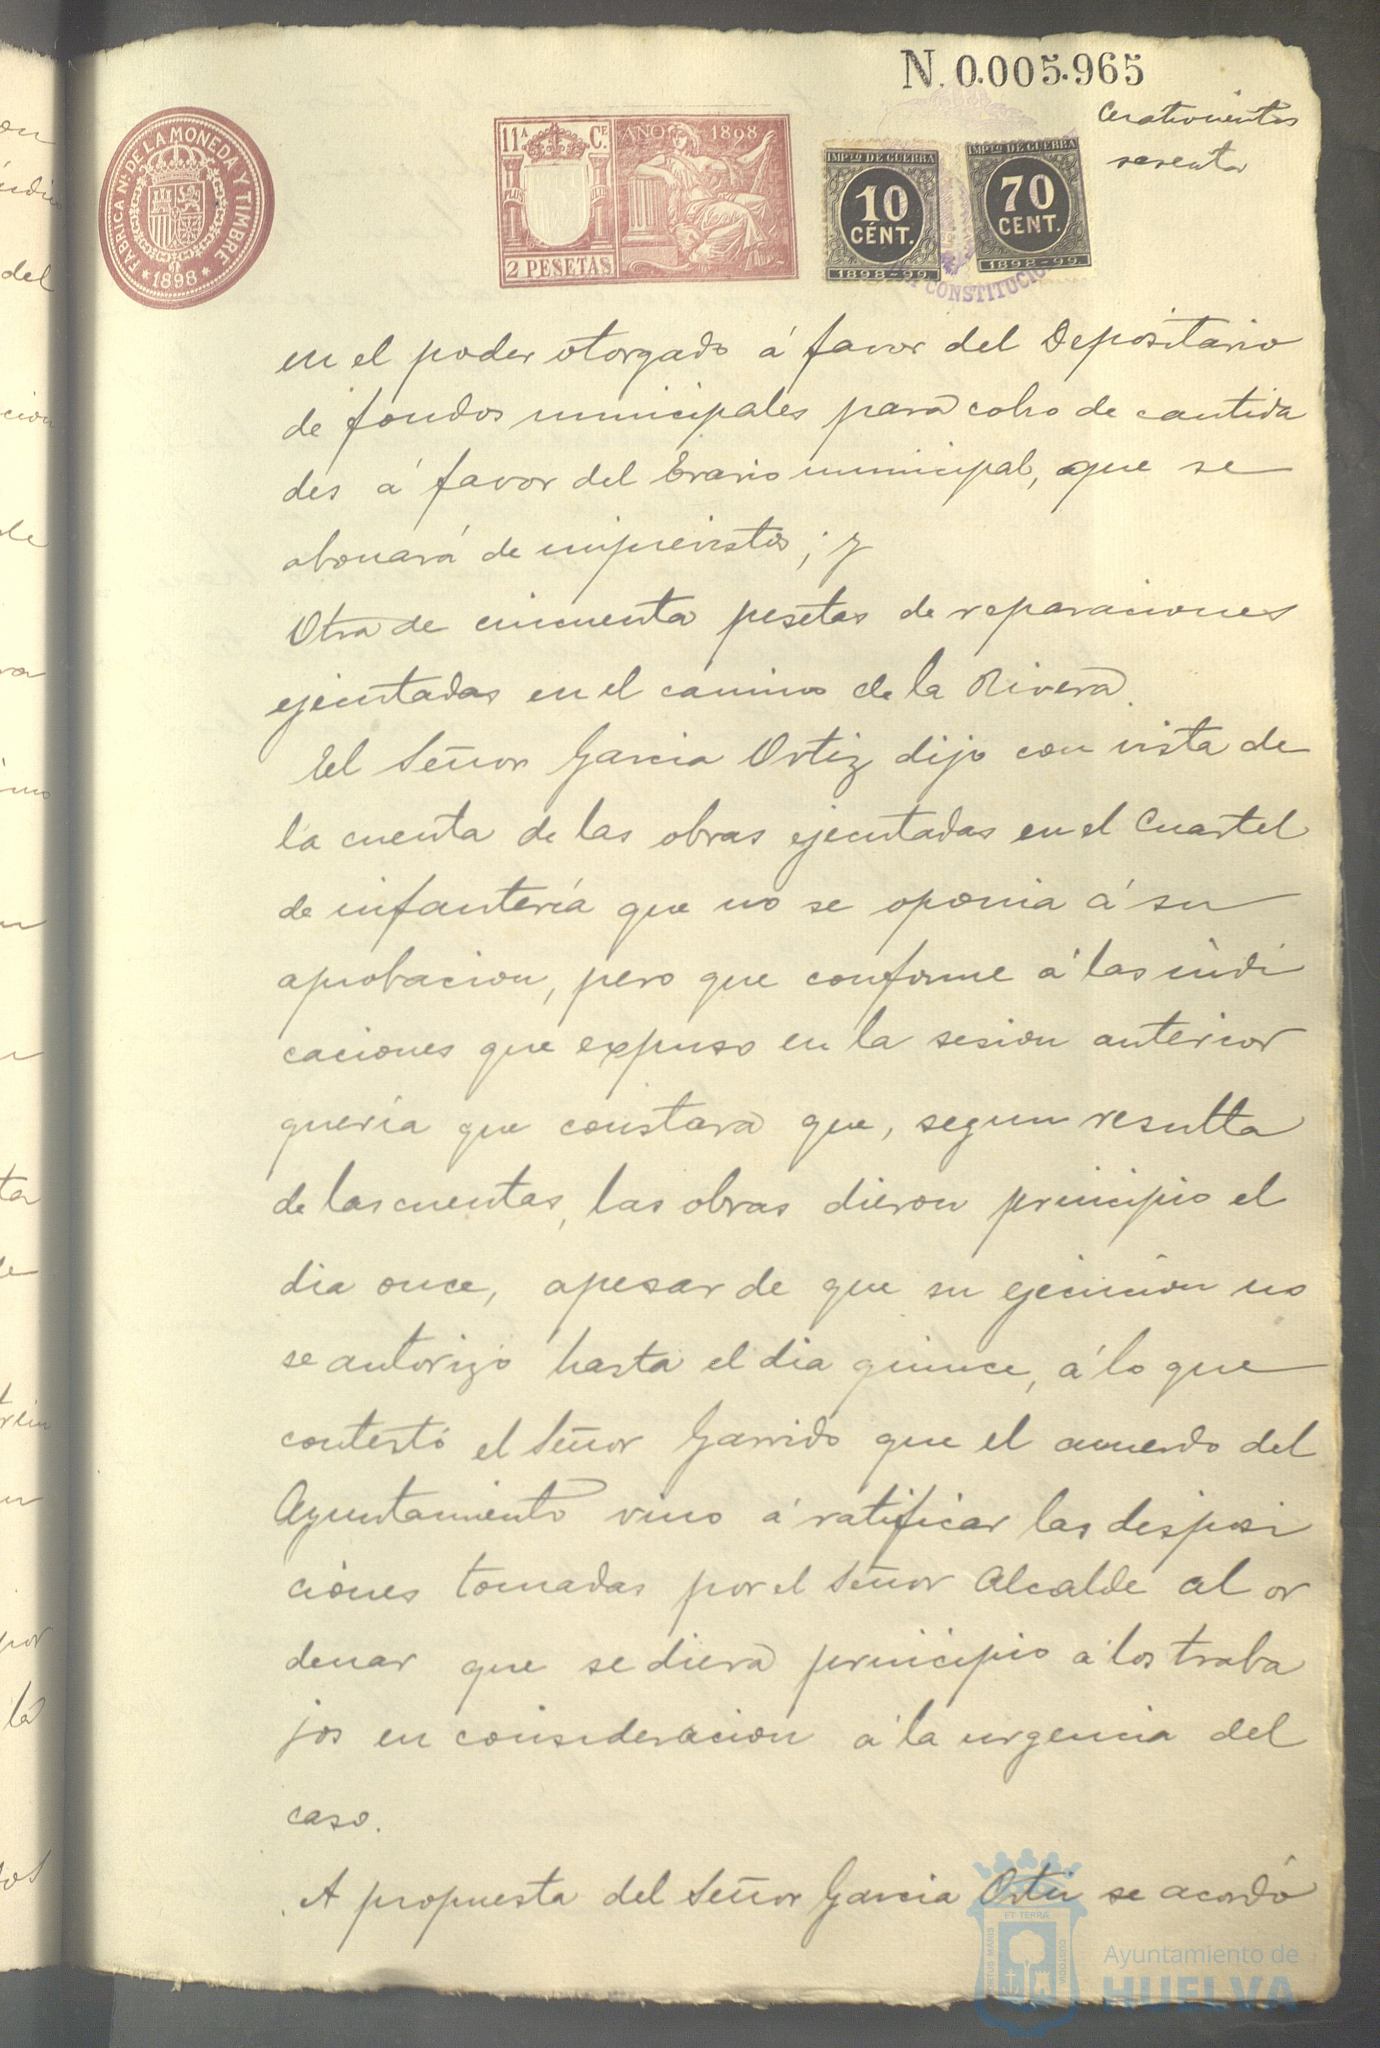 N. 0.005.965
Cuatrocientos
sesenta
FABRICA NL. DE LA MONEDA Y TIMBRE
* 1898 *
11ª CE. AÑO 1898
PLUS
2 PESETAS
IMPTO DE GUERRA
10
CÉNT.
1898-99
IMPTO DE GUERRA
70
CENT.
1898-99
CONSTITUCIO
en el poder otorgado á favor del Depositario
de fondos municipales para cobro de cantida
des á favor del Erario municipal, que se
abonará de imprevistos; y
Otra de cincuenta pesetas de reparaciones
ejecutadas en el camino de la Rivera.
El Señor Garcia Ortiz dijo con vista de
la cuenta de las obras ejecutadas en el Cuartel
de infantería que no se oponia á su
aprobacion, pero que conforme á las indi
caciones que expuso en la sesion anterior
quería que constara que, segun resulta
de las cuentas, las obras dieron principio el
dia once, apesar de que su ejecucion no
se autorizó hasta el dia quince, á lo que
contestó el Señor Garrido que el acuerdo del
Ayuntamiento vino á ratificar las disposi
ciones tomadas por el Señor Alcalde al or
denar que se diera principio á los traba
jos en consideracion á la urgencia del
caso.
A propuesta del Señor Garcia Ortiz se acordó
ET TERRÆ
PORTUS MARIS
CUSTODIA
Ayuntamiento de
HUELVA